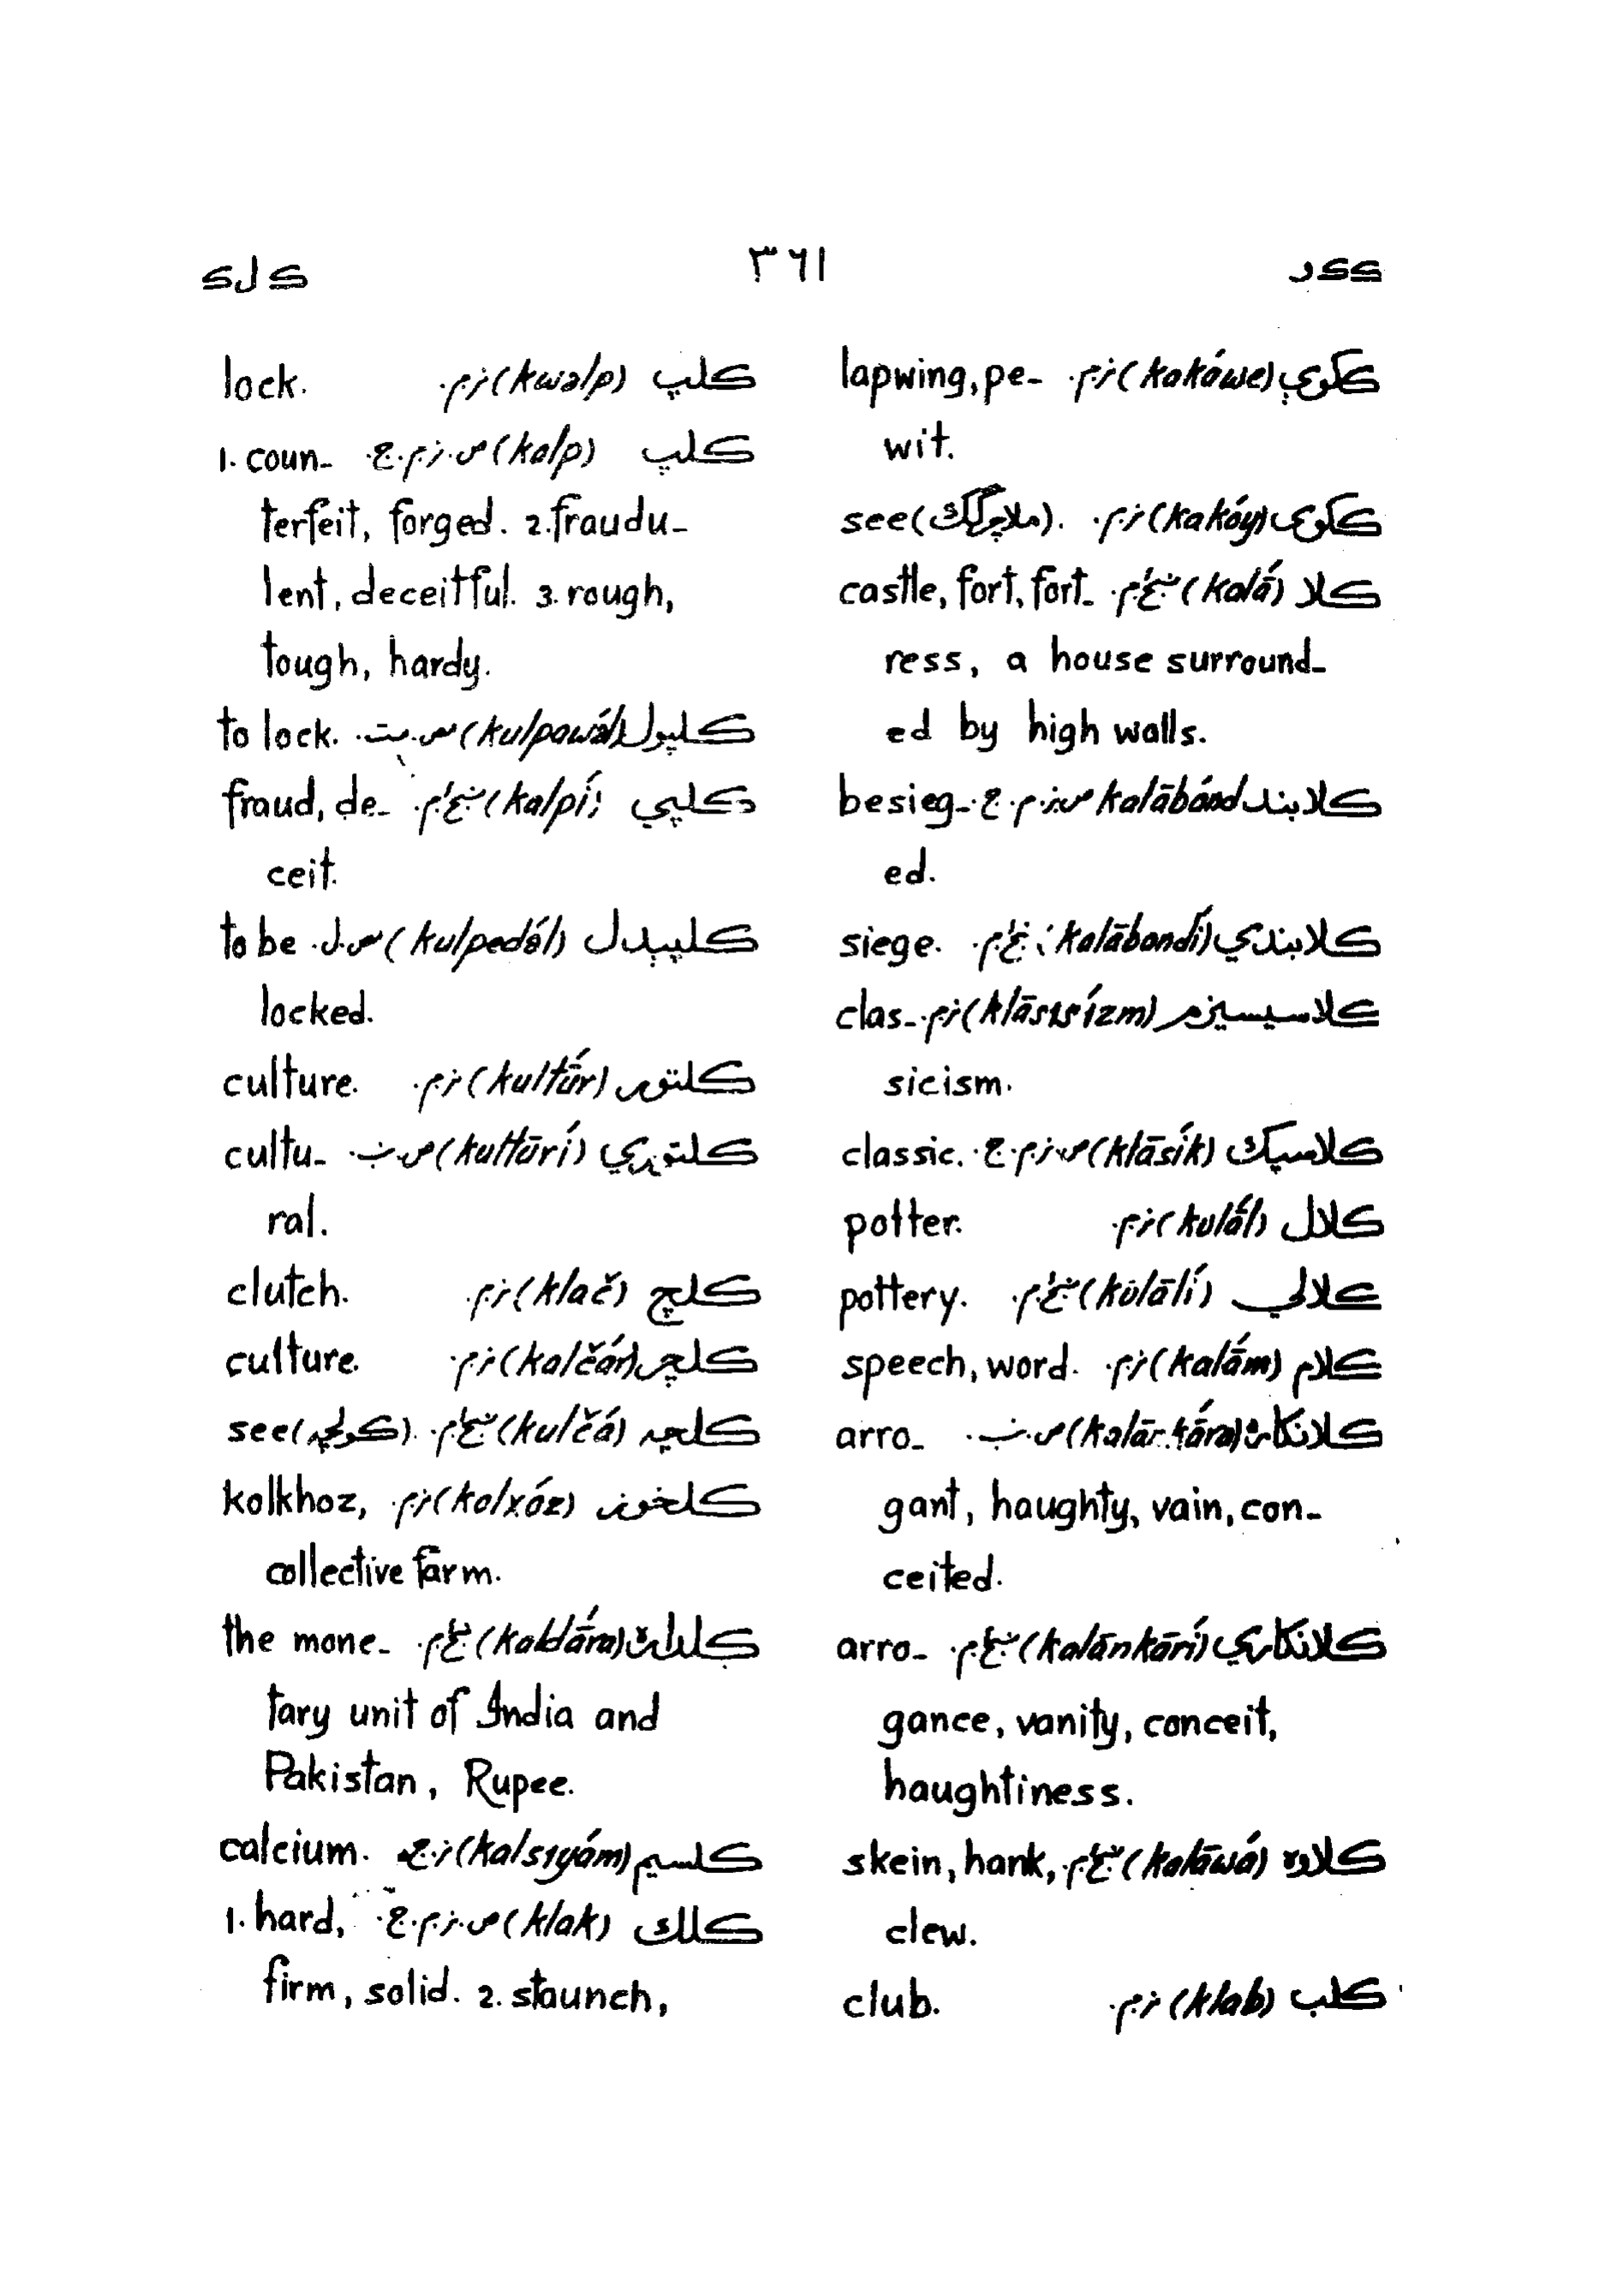 ککر ۳٦۱ ک ل ک
ککوې (kakáwe) ن.م. lapwing, pe-
wit.
ککوی (kakóy) ن.م. see (ملاچرګک).
کلا (kalā́) ښځ.م. castle, fort, fort-
ress, a house surround-
ed by high walls.
کلابند kalābánd ص.ن.م.ج. besieg-
ed.
کلابندي (kalābandí) ښځ.م. siege.
کلاسیسیزم (klāsısízm) ن.م. clas-
sicism.
کلاسیک (klāsík) ص.ن.م.ج. classic.
کلال (kulā́l) ن.م. potter.
کلالي (kulālí) ښځ.م. pottery.
کلام (kalā́m) ن.م. speech, word.
ص.ب. arro-
gant, haughty, vain, con-
ceited.
کلانکاري (kalānkārí) ښځ.م. arro-
gance, vanity, conceit,
haughtiness.
کلاوه (kalāwá) ښځ.م. skein, hank,
clew.
کلب (klab) ن.م. club.
کلپ (kwəlp) ن.م. lock.
کلپ (kalp) ص.ن.م.ج. 1. coun-
terfeit, forged. 2. fraudu-
lent, deceitful. 3. rough,
tough, hardy.
کلپول (kulpawə́l) ص.مت. to lock.
کلپي (kalpí) ښځ.م. fraud, de-
ceit.
کلپېدل (kulpedə́l) ص.ل. to be
locked.
کلتور (kultū́r) ن.م. culture.
کلتوري (kultūrí) ص.ب. cultu-
ral.
کلچ (klač) ن.م. clutch.
کلچر (kalčár) ن.م. culture.
کلچه (kulčá) ښځ.م. see (کولچه).
کلخوز (kolxóz) ن.م. kolkhoz,
collective farm.
کلداره (kaldā́ra) ښځ.م. the mone-
tary unit of India and
Pakistan, Rupee.
کلسیم (kalsıyám) ن.ج. calcium.
کلک (klak) ص.ن.م.ج. 1. hard,
firm, solid. 2. staunch,